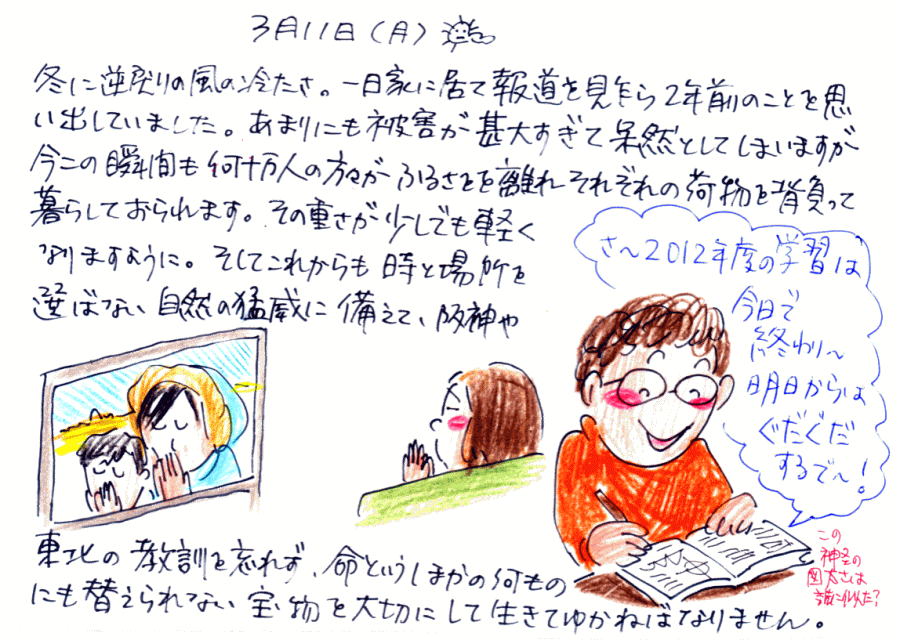 3月11日(月)
冬に逆戻りの風の冷たさ。一日家に居て報道を見たら2年前のことを思
い出していました。あまりにも被害が甚大すぎて呆然としてしまいますが
今この瞬間も何十万人の方々がふるさとを離れそれぞれの荷物を背負って
暮らしておられます。その重さが少しでも軽く
なりますように。そしてこれからも時と場所を
選ばない自然の猛威に備えて、阪神や
さ〜2012年度の学習は
今日で
終わり〜
明日からは
ぐだぐだ
するで〜!
東北の教訓を忘れず、命というほかの何もの
にも替えられない宝物を大切にして生きてゆかねばなりません。
この
神経の
図太さは
誰に似た?